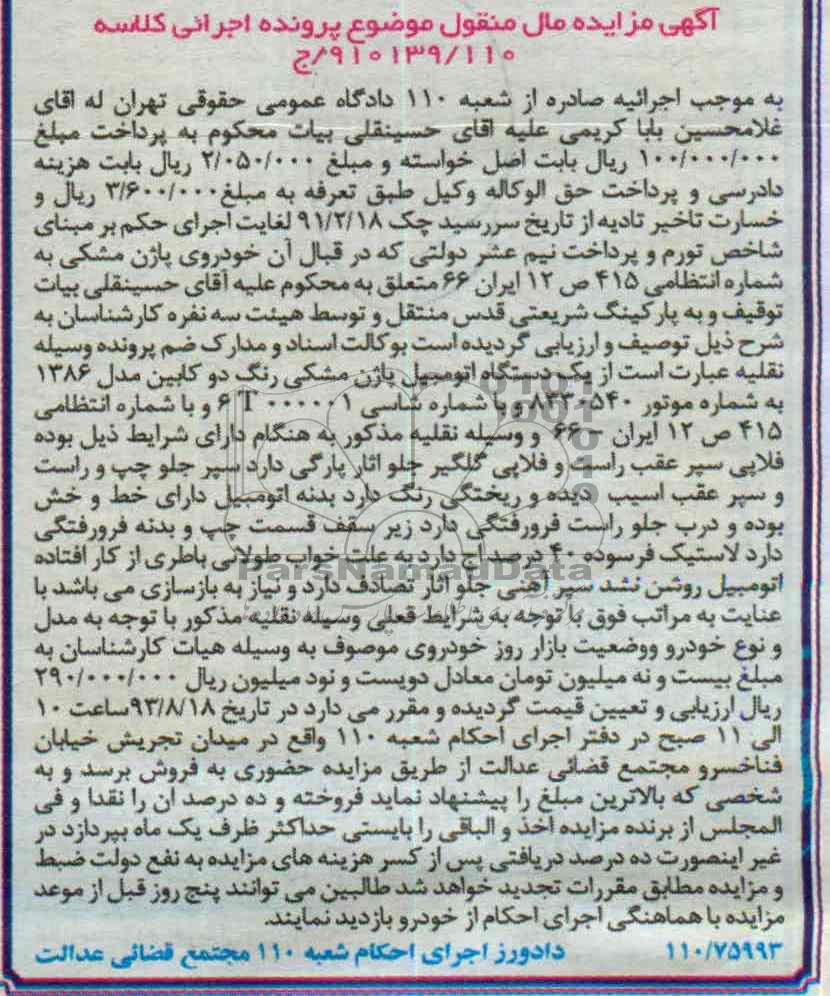 آگهی مزایده مال منقول موضوع پرونده اجرائی کلاسه
۹۱۰۱۳۹/۱۱۰/ج
به موجب اجرائیه صادره از شعبه ۱۱۰ دادگاه عمومی حقوقی تهران له اقای
غلامحسین بابا کریمی علیه اقای حسینقلی بیات محکوم به پرداخت مبلغ
۱۰۰/۰۰۰/۰۰۰ ریال بابت اصل خواسته و مبلغ ۲/۰۵۰/۰۰۰ ریال بابت هزینه
دادرسی و پرداخت حق الوکاله وکیل طبق تعرفه به مبلغ۳/۶۰۰/۰۰۰ ریال و
خسارت تاخیر تادیه از تاریخ سررسید چک ۹۱/۲/۱۸ لغایت اجرای حکم بر مبنای
شاخص تورم و پرداخت نیم عشر دولتی که در قبال آن خودروی پاژن مشکی به
شماره انتظامی ۴۱۵ ص ۱۲ ایران ۶۶ متعلق به محکوم علیه آقای حسینقلی بیات
توقیف و به پارکینگ شریعتی قدس منتقل و توسط هیئت سه نفره کارشناسان به
شرح ذیل توصیف و ارزیابی گردیده است بوکالت اسناد و مدارک ضم پرونده وسیله
نقلیه عبارت است از یک دستگاه اتومبیل پاژن مشکی رنگ دو کابین مدل ۱۳۸۶
به شماره موتور ۸۳۳۰۵۴۰ و با شماره شاسی ۰۰۰۰۰۱ T ۶ و با شماره انتظامی
۴۱۵ ص ۱۲ ایران – ۶۶ و وسیله نقلیه مذکور به هنگام دارای شرایط ذیل بوده
فلاپی سپر عقب راست و فلاپی گلگیر جلو اثار پارگی دارد سپر جلو چپ و راست
و سپر عقب اسیب دیده و ریختگی رنگ دارد بدنه اتومبیل دارای خط و خش
بوده و درب جلو راست فرورفتگی دارد زیر سقف قسمت چپ و بدنه فرورفتگی
دارد لاستیک فرسوده ۴۰ درصد اج دارد به علت خواب طولانی باطری از کار افتاده
اتومبیل روشن نشد سپر اهنی جلو آثار تصادف دارد و نیاز به بازسازی می باشد با
عنایت به مراتب فوق با توجه به شرایط فعلی وسیله نقلیه مذکور با توجه به مدل
و نوع خودرو ووضعیت بازار روز خودروی موصوف به وسیله هیات کارشناسان به
مبلغ بیست و نه میلیون تومان معادل دویست و نود میلیون ریال ۲۹۰/۰۰۰/۰۰۰
ریال ارزیابی و تعیین قیمت گردیده و مقرر می دارد در تاریخ ۹۳/۸/۱۸ساعت ۱۰
الی ۱۱ صبح در دفتر اجرای احکام شعبه ۱۱۰ واقع در میدان تجریش خیابان
فناخسرو مجتمع قضائی عدالت از طریق مزایده حضوری به فروش برسد و به
شخصی که بالاترین مبلغ را پیشنهاد نماید فروخته و ده درصد ان را نقدا و فی
المجلس از برنده مزایده اخذ و الباقی را بایستی حداکثر ظرف یک ماه بپردازد در
غیر اینصورت ده درصد دریافتی پس از کسر هزینه های مزایده به نفع دولت ضبط
و مزایده مطابق مقررات تجدید خواهد شد طالبین می توانند پنج روز قبل از موعد
مزایده با هماهنگی اجرای احکام از خودرو بازدید نمایند.
۱۱۰/۷۵۹۹۳ دادورز اجرای احکام شعبه ۱۱۰ مجتمع قضائی عدالت
ParsNamadData